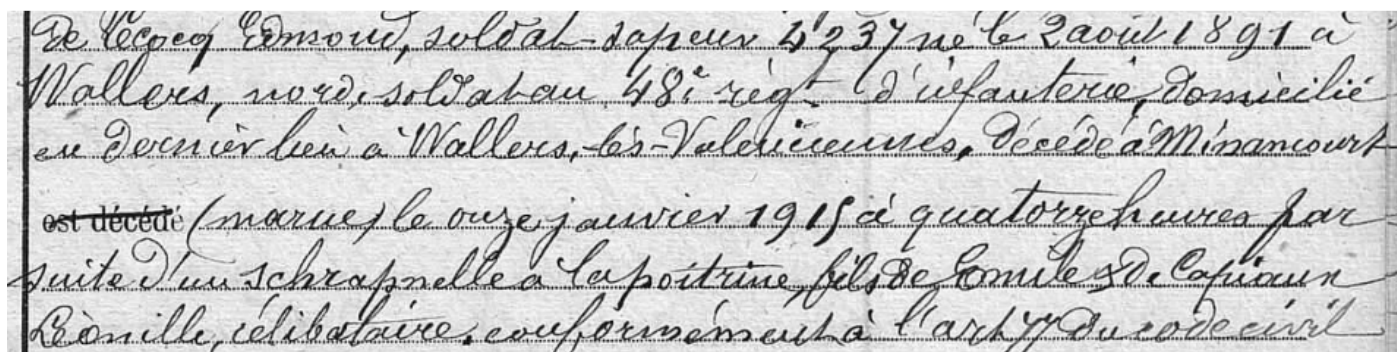 de Lecocq Edmond, soldat-sapeur 4237 né le 2 août 1891 à
Wallers, nord, soldat au 48e régt d'infanterie, domicilié
en dernier lieu à Wallers, lès-Valenciennes, décédé à Minancourt
est décédé (marne) le onze janvier 1915 à quatorze heures par
suite d'un schrapnelle à la poitrine, fils de Emile & de Capiaux
Léonille, célibataire, conformément à l'art 77 du code civil